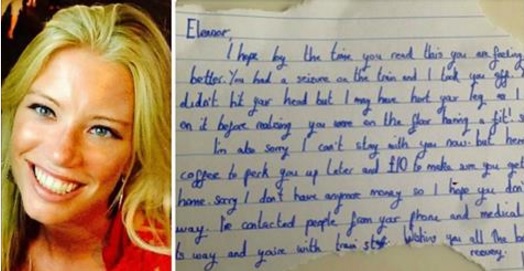 Eleanor,
I hope by the time you read this you are feeling
better. You had a seizure on the train and I took you off.
didn't hit your head but I may have hurt your leg as I
on it before realising you were on the floor having a fit!
I'm also sorry I can't stay with you now. but here
coffee to perk you up later and £10 to make sure you get
home. sorry I don't have anymore money so I hope you don
way. I've contacted people from your phone and medical
is way and you're with train staff. Wishing you all the
recovery.